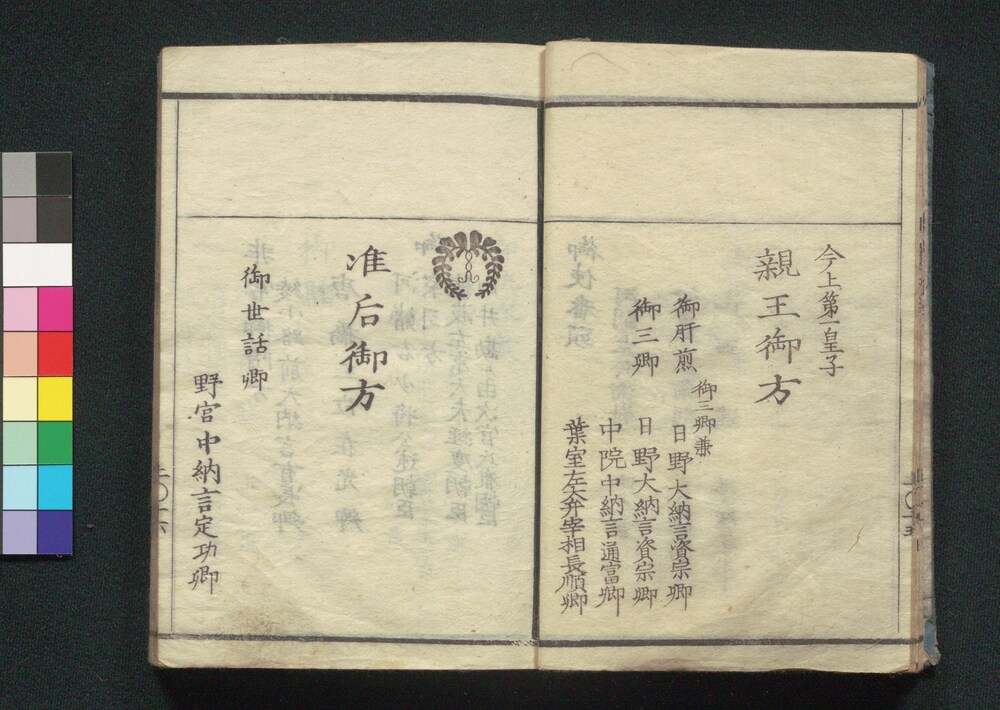 今上第一皇子
親王御方
御肝煎
御三卿兼
日野大納言資宗卿
御三卿
日野大納言資宗卿
中院中納言通富卿
葉室左大弁宰相長順卿
准后御方
御世話卿
野宮中納言定功卿